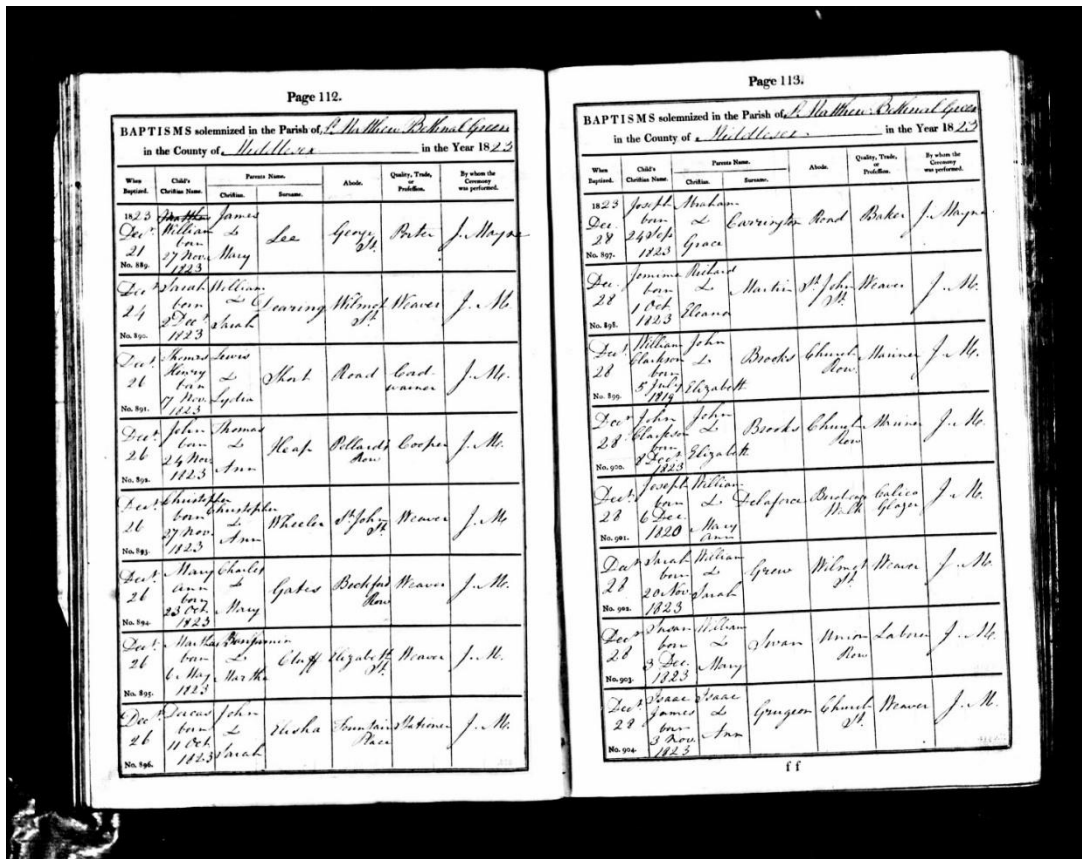 Page 112.
BAPTISMS solemnized in the Parish of St. Matthew Bethnal Green
in the County of Middlesex in the Year 1823
When Baptized. Child's Christian Name. Parents Name. Christian. Surname. Abode. Quality, Trade, or Profession. By whom the Ceremony was performed.
1823 Decr. 21 No. 889. William born 17 Nov. 1823 James & Mary Lee George St. Porter J. Mayne
Decr. 24 No. 890. Sarah born 2 Decr. 1823 William & Sarah Dearing Wilmot St. Weaver J. M.
Decr. 26 No. 891. Thomas Henry born 17 Nov. 1823 Lewis & Lydia Short Road Cordwainer J. M.
Decr. 26 No. 892. John born 24 Nov. 1823 Thomas & Ann Heap Pollard's Row Cooper J. M.
Decr. 26 No. 893. Christopher born 27 Nov. 1823 Christopher & Ann Wheeler St. John St. Weaver J. M.
Decr. 26 No. 894. Mary Ann born 23 Oct. 1823 Charles & Mary Gates Beckford Row Weaver J. M.
Decr. 26 No. 895. Martha born 6 May 1823 Benjamin & Martha Cluff Elizabeth St. Weaver J. M.
Decr. 26 No. 896. Dorcas born 11 Oct. 1823 John & Sarah Elisha Fountain Place Stationer J. M.
Page 113.
BAPTISMS solemnized in the Parish of St. Matthew Bethnal Green
in the County of Middlesex in the Year 1823
When Baptized. Child's Christian Name. Parents Name. Christian. Surname. Abode. Quality, Trade, or Profession. By whom the Ceremony was performed.
1823 Decr. 28 No. 897. Joseph born 24 Sep. 1823 Abraham & Grace Carrington Road Baker J. Mayne
Decr. 28 No. 898. Jemima born 1 Oct. 1823 Richard & Eleanor Martin St. John St. Weaver J. M.
Decr. 28 No. 899. William Clarkson born 5 July 1819 John & Elizabeth Brooks Church Row Mariner J. M.
Decr. 28 No. 900. John Clarkson born 8 Decr. 1823 John & Elizabeth Brooks Church Row Mariner J. M.
Decr. 28 No. 901. Joseph born 6 Dec. 1820 William & Mary Ann Delaforce Walk Calico Glazer J. M.
Decr. 28 No. 902. Sarah born 20 Nov. 1823 William & Sarah Grew Wilmot St. Weaver J. M.
Decr. 28 No. 903. Susan born 3 Dec. 1823 William & Mary Swan Union Row Laborer J. M.
Decr. 28 No. 904. Isaac James born 3 Nov. 1823 Isaac & Ann Grugeon Church St. Weaver J. M.
f f